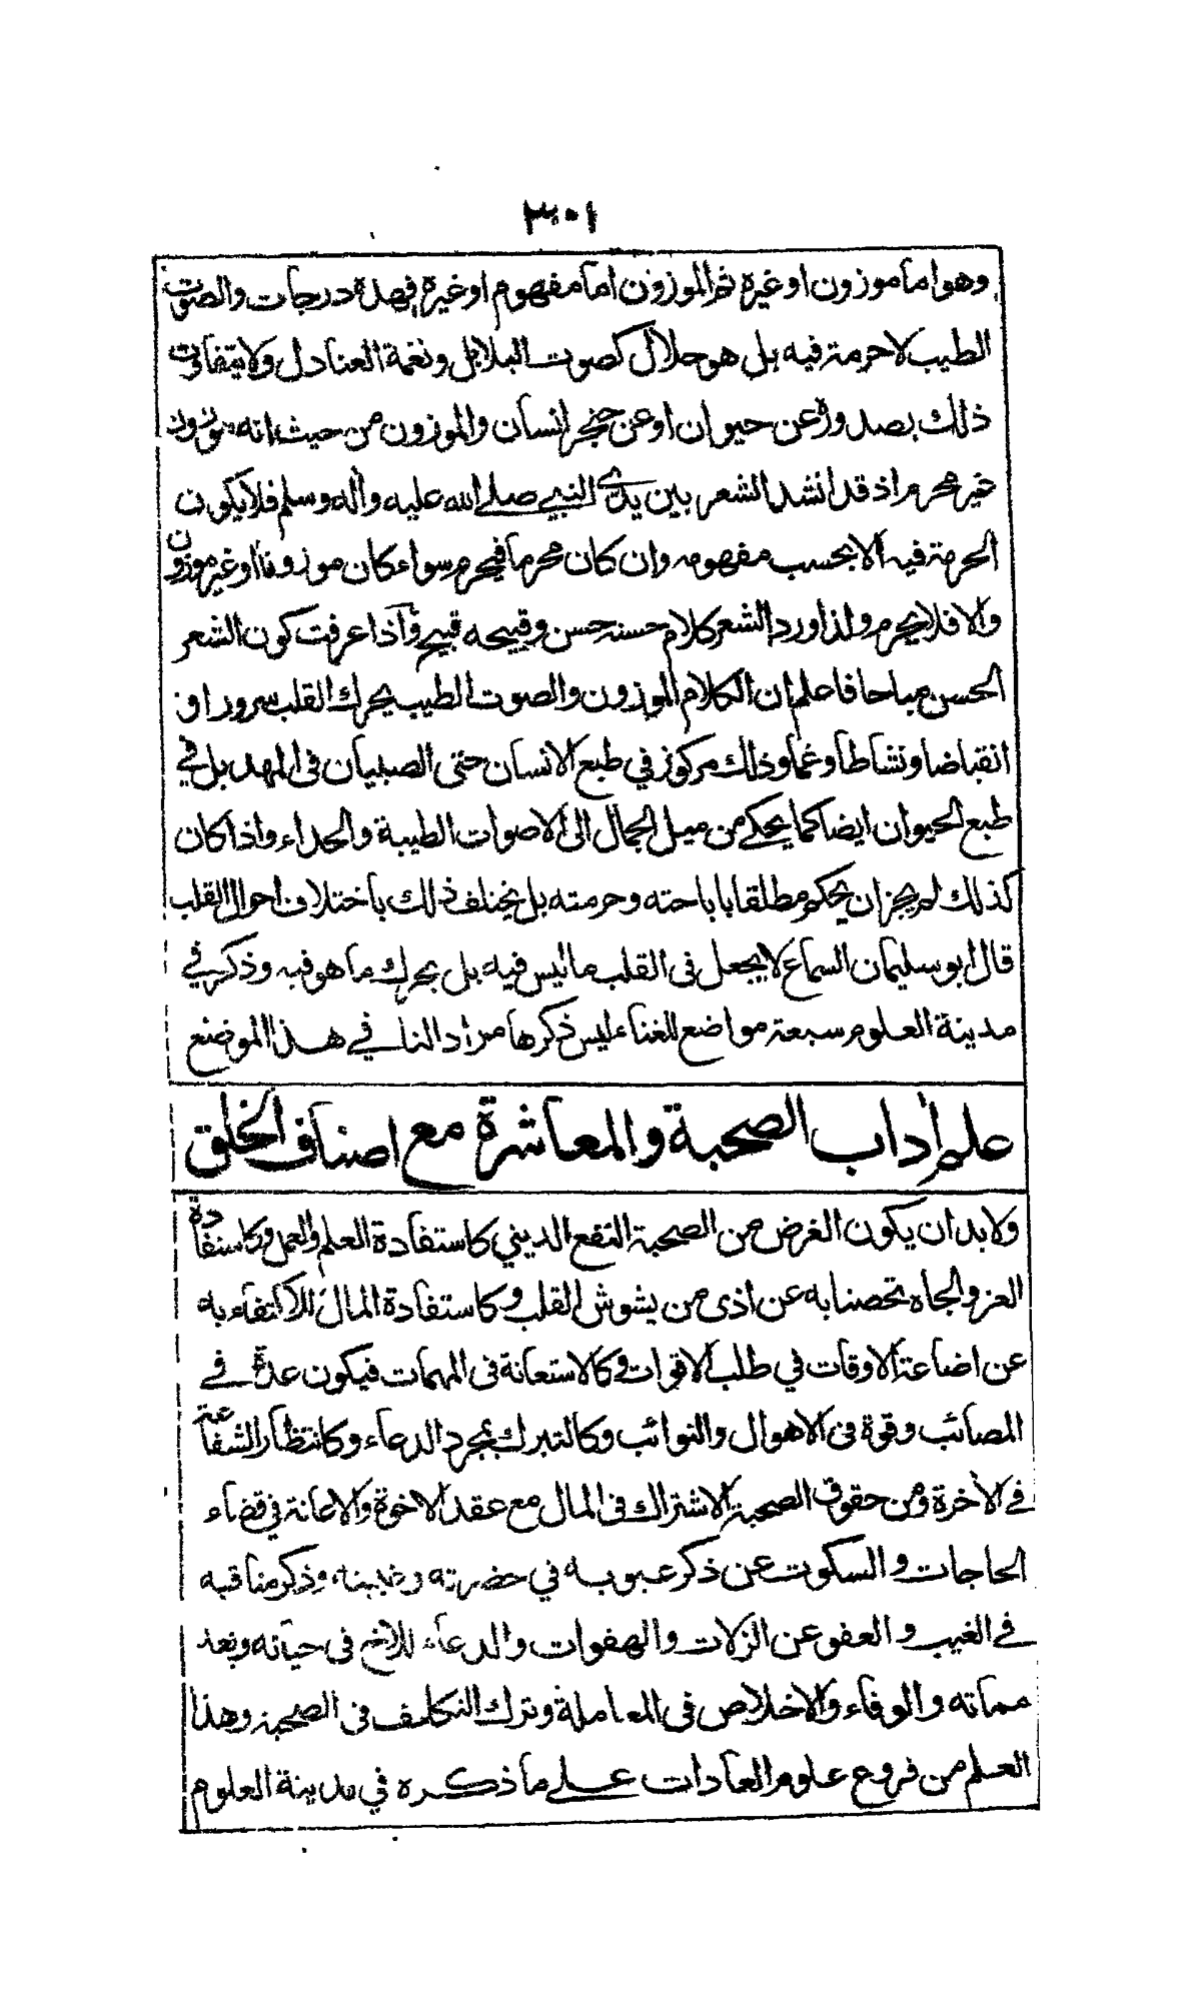 ٣٠١
وهو اما موزون او غيره ثم الموزون اما مفهوم او غيره فهذه درجات والصوت
الطيب لا حرمة فيه بل هو حلال كصوت البلابل ونغمة العنادل ولا يتفاوت
ذلك بصدوره عن حيوان او عن حنجر انسان والموزون من حيث انه موزون
غير محرم اذ قد انشد الشعر بين يدي النبي صلى الله عليه وآله وسلم فلا يكون
الحرمة فيه الا بحسب مفهومه وان كان محرما فيحرم سواء كان موزونا او غير موزون
والا فلا يحرم ولذا ورد الشعر كلام حسنه حسن وقبيحه قبيح وآذا عرفت كون الشعر
الحسن مباحا فاعلم ان الكلام الموزون والصوت الطيب يحرك القلب سرورا و
انقباضا ونشاطا وغما وذلك مركوز في طبع الانسان حتى الصبيان فى المهد بل في
طبع الحيوان ايضا كما يحكى من ميل الجمال الى الاصوات الطيبة والحداء واذا كان
كذلك لم يجز ان يحكم مطلقا باباحته وحرمته بل يختلف ذلك باختلاف احوال القلب
قال ابو سليمان السماع لا يجعل فى القلب ما ليس فيه بل يحرك ما هو فيه وذكر في
مدينة العلوم سبعة مواضع للغناء ليس ذكرها مراد النا في هذا الموضع
علم آداب الصحبة والمعاشرة مع اصناف الخلق
ولا بد ان يكون الغرض من الصحبة النفع الديني كاستفادة العلم والعمل وكاستفادة
العز والجاه تحصنا به عن اذى من يشوش القلب وكاستفادة المال للاكتفاء به
عن اضاعة الاوقات في طلب الاقوات وكالاستعانة فى المهمات فيكون عدة في
المصائب وقوة فى الاهوال والنوائب وكالتبرك بمجرد الدعاء وكانتظار الشفاعة
في الآخرة ومن حقوق الصحبة الاشتراك فى المال مع عقد الاخوة والاعانة في قضاء
الحاجات والسكوت عن ذكر عيوبه في حضرته وغيبته وذكر مناقبه
في الغيب والعفو عن الزلات والهفوات والدعاء للاخ فى حياته وبعد
مماته والوفاء والاخلاص فى المعاملة وترك التكليف فى الصحبة وهذا
العلم من فروع علوم العادات على ما ذكره في مدينة العلوم